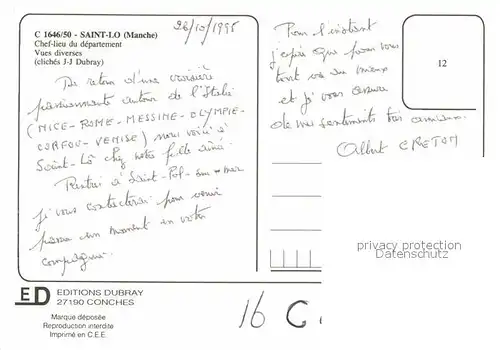 C 1646/50 - SAINT-LO (Manche)
Chef-lieu du département
Vues diverses
(clichés J-J Dubray)
26/10/1995
De retour d'une croisière
passionnante autour de l'Italie
(NICE-ROME-MESSINE-OLYMPIE-
CORFOU-VENISE) nous voici à
Saint-Lô chez notre fille aînée.
Rentrés à Saint-Pol-sur-mer
je vous contacterai pour venir
passer un moment en votre
compagnie.
Pour l'instant
j'espère que pour vous
tout va au mieux
et je vous assure
de mes sentiments très amicaux.
Albert CRETON
12
privacy protection
Datenschutz
ED EDITIONS DUBRAY
27190 CONCHES
Marque déposée
Reproduction interdite
Imprimé en C.E.E.
16 C.